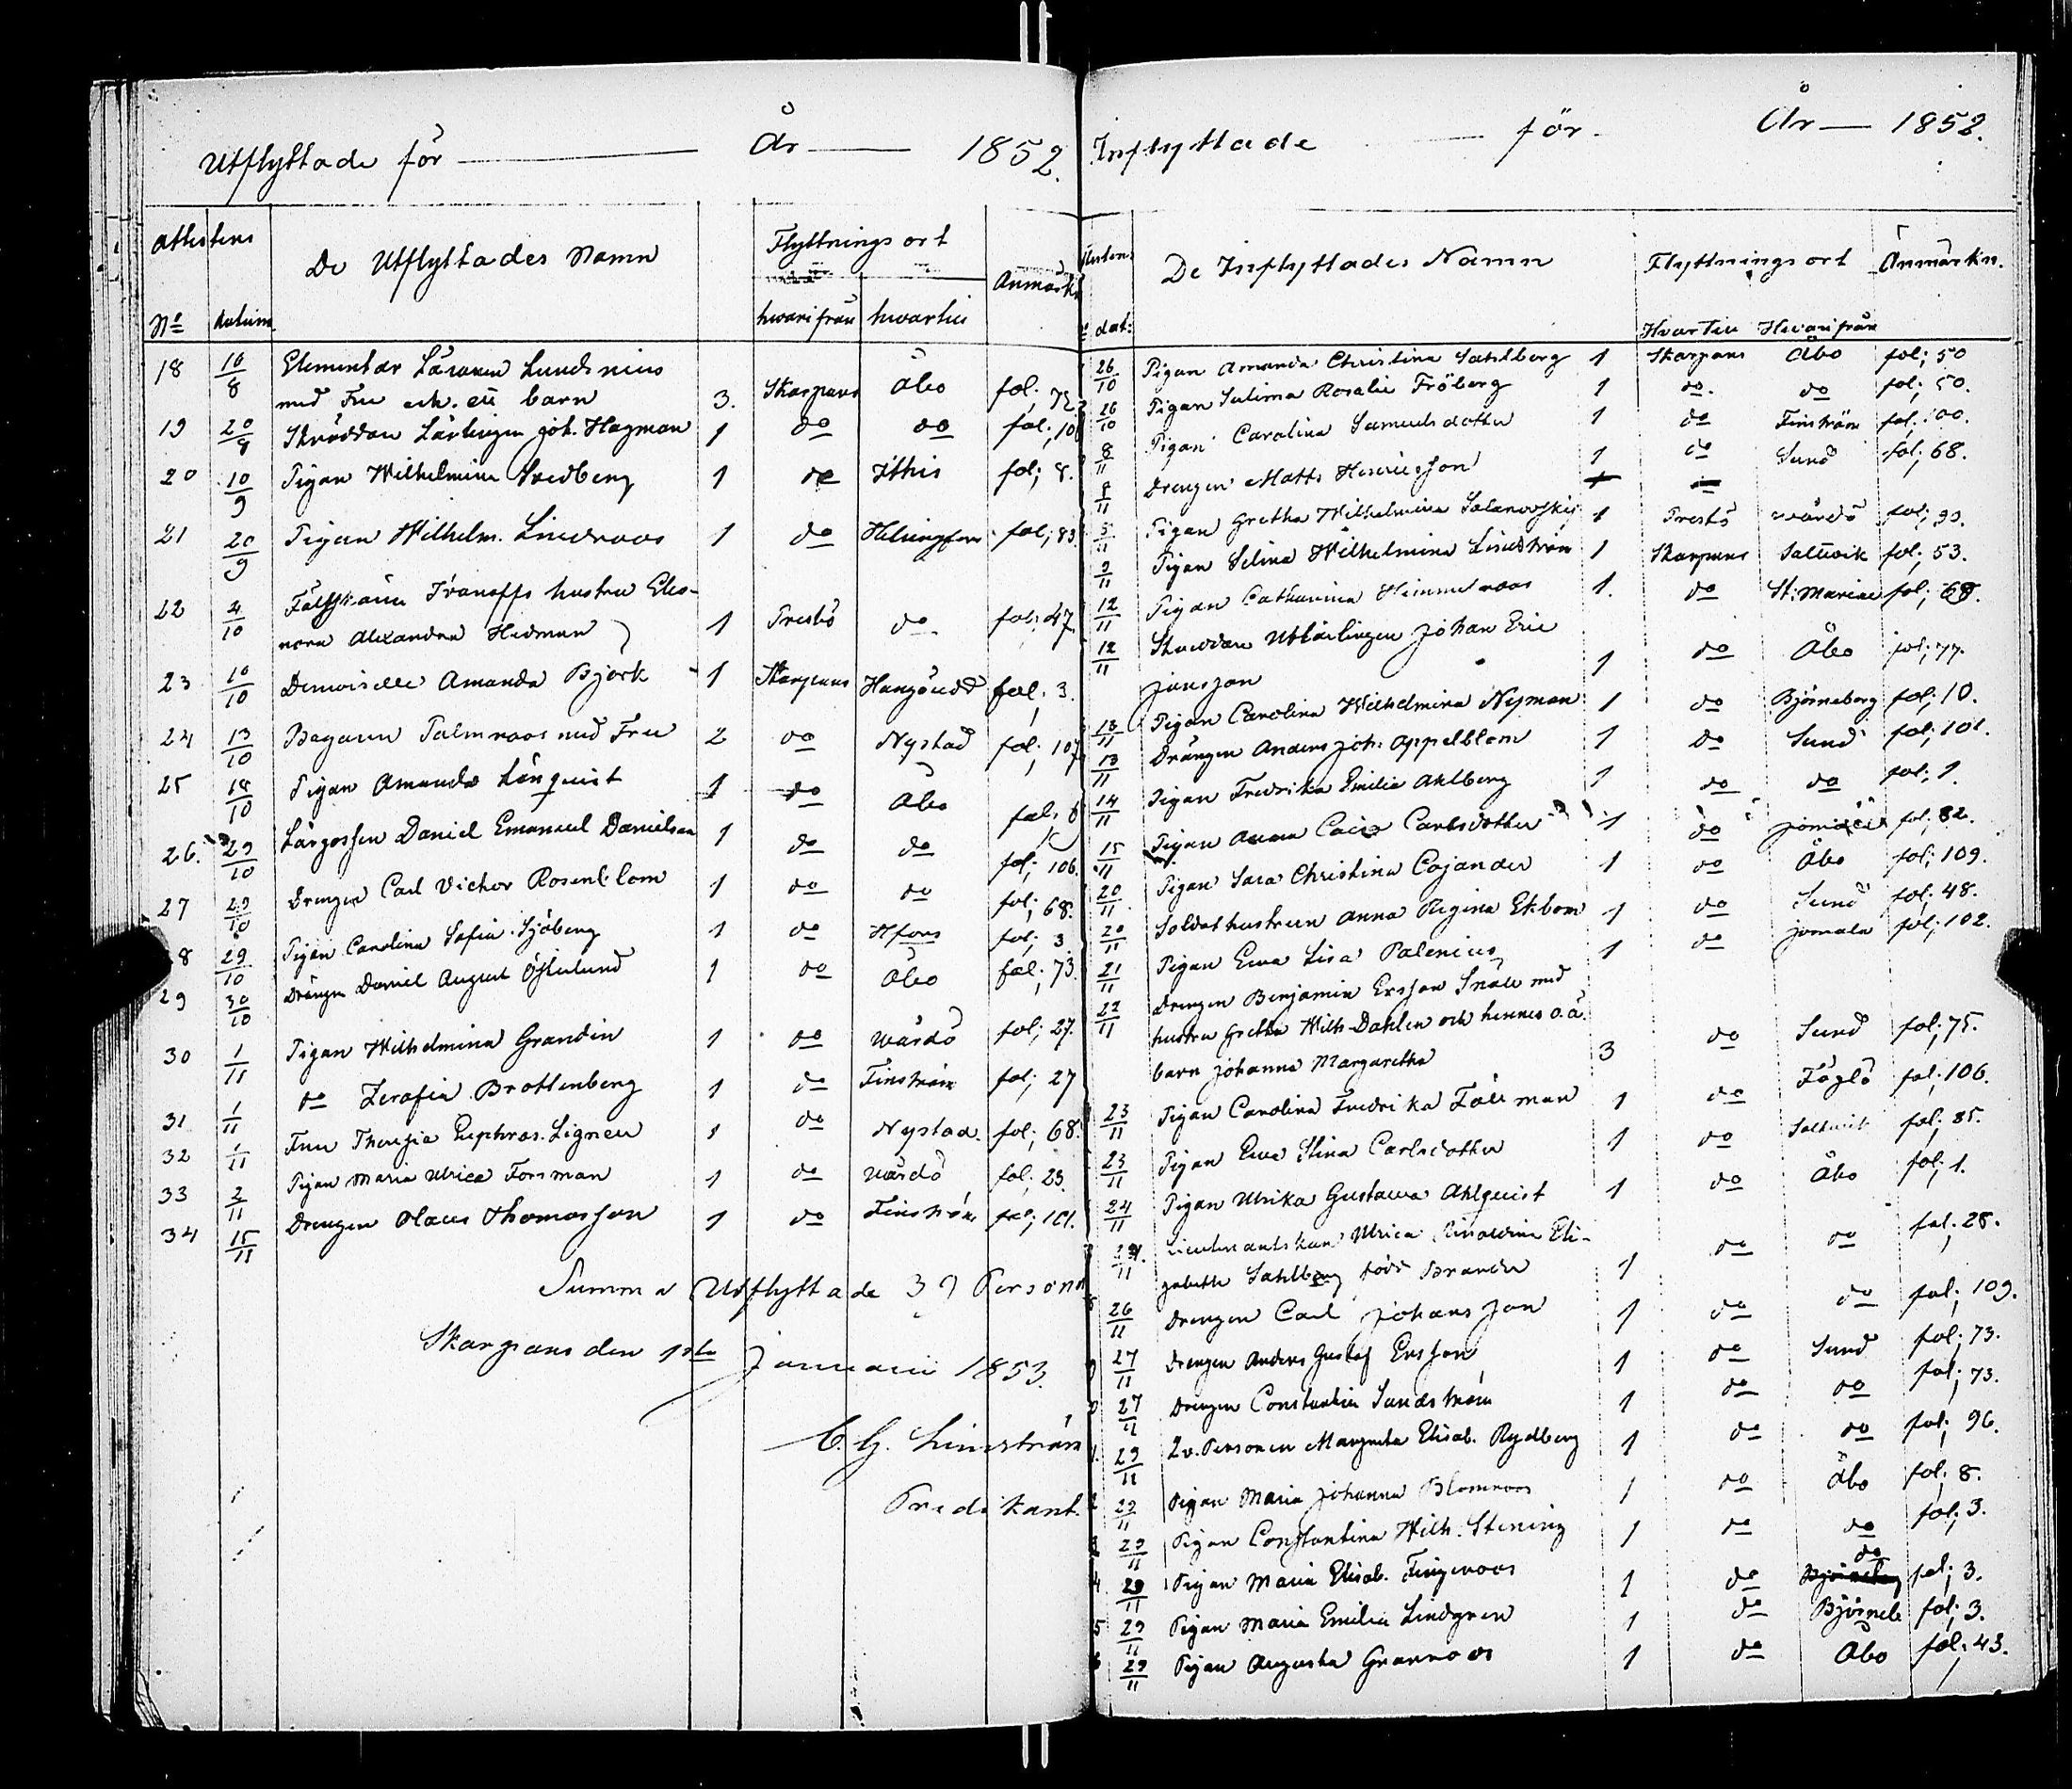 Utflyttade för År 1852.
attestens
De Utflyttades Namn
Flyttnings ort
Anmärkn
No datum
hvarifrån hvartill
18 16/8 Elementar Läraren Lundenius
med Fru och ett barn 3. Skarpans Åbo fol; 72
19 20/9 Skräddare Lärlingen Joh. Hagman 1 do do fol; 10
20 10/9 Pigan Wilhelmina Svedberg 1 do Ithis fol; 8.
21 20/9 Pigan Wilhelm. Lindroos 1 do Helsingfors fol; 83.
22 4/10 Fältskären Ivanoffs hustru Eleo-
nora Alexandra Hedman 1 Prestö do fol; 47
23 10/10 Demoiselle Amanda Björk 1 Skarpans Hangöudd fol; 3.
24 13/10 Bagaren Palmroos med Fru 2 do Nystad fol; 107
25 18/10 Pigan Amanda Lönquist 1 do Åbo fol; 8
26. 29/10 Lärgossen Daniel Emanuel Danielsson 1 do do fol; 106.
27 29/10 Drengen Carl Victor Rosenblom 1 do do fol; 68.
28 29/10 Pigan Carolina Sofia Sjöberg 1 do Hfors fol; 3
29 30/10 Drängen Daniel August Österlund 1 do Åbo fol; 73.
30 1/11 Pigan Wilhelmina Grandin 1 do Wårdö fol; 27.
31 1/11 do Serafia Brottenberg 1 do Finström fol; 27
32 1/11 Fru Theresia Euphros. Lignell 1 do Nystad. fol; 68.
33 2/11 Pigan Maria Ulrica Forsman 1 do Wårdö fol; 23.
34 15/11 Drengen Olaus Thomasson 1 do Finström fol; 101.
Summa Utflyttade 39 Personer
Skarpans den 1sta Januarii 1853.
C. G. Limström
Predikant.
Inflyttade för År 1852.
De Inflyttades Namn Flyttningsort Anmärkn.
dat: Hvartill Hvarifrån
26/10 Pigan Amanda Christina Sahlberg 1 Skarpans Åbo fol; 50
26/10 Pigan Selima Rosalie Fröberg 1 do. do fol; 50.
8/11 Pigan Carolina Samuelsdotter 1 do Finström fol; 100.
8/11 Drengen Matts Henricsson 1 do Sund fol; 68.
5/11 Pigan Gretha Wilhelmina 1 Prestö Wårdö fol; 99.
9/11 Pigan Selina Wilhelmina Lindström 1 Skarpans Saltvik fol; 53.
12/11 Pigan Catharina Himmelroos 1. do St: Mariae fol; 68.
12/11 Skräddare Utlärlingen Johan Eric
Jansson 1 do Åbo fol; 77.
13/11 Pigan Carolina Wilhelmina Nyman 1 do Björneborg fol; 10.
13/11 Drängen Anders Joh. Appelblom 1 do Sund fol; 101.
14/11 Pigan Fredrika Emilia Ahlberg 1 do do fol; 1.
15/11 Pigan Anna Caisa Carlsdotter 1 do Jomala fol; 82.
20/11 Pigan Sara Christina Cajander 1 do Åbo fol; 109.
20/11 Soldathustrun Anna Regina Ekbom 1 do Sund fol; 48.
21/11 Pigan Ewa Lisa Palenius 1 do Jomala fol; 102.
22/11 Drengen Benjamin Ersson Snäll med
hustru Gretha Wilh. Dahlen och hennes o. ä.
barn Johanna Margaretha 3 do Sund fol; 75.
23/11 Pigan Carolina Fredrika Fällman 1 do Föglö fol; 106.
23/11 Pigan Ewa Stina Carlsdotter 1 do Saltvik fol; 85.
24/11 Pigan Ulrika Gustawa Ahlquist 1 do Åbo fol; 1.
24/11 Lieutnantskan Ulrica Rinaldina Eli-
zabeth Sahlberg född Brander 1 do do fol; 28.
26/11 Drengen Carl Johansson 1 do do fol; 109.
27/11 Drengen Anders Gustaf Ersson 1 do Sund fol; 73.
27/11 Drengen Constantin Sundström 1 do do fol; 73.
29/11 Qv. Personen Margreta Elisab. Rydberg 1 do do fol; 96.
29/11 Pigan Maria Johanna Blomroos 1 do Åbo fol; 8.
29/11 Pigan Constantina Wilh. Stening 1 do do fol; 3.
29/11 Pigan Maria Elisab. Fingerroos 1 do do fol; 3.
5 29/11 Pigan Maria Emilia Lindgren 1 do Björneb fol; 3.
6 29/11 Pigan Augusta Granroos 1 do Åbo fol; 43.